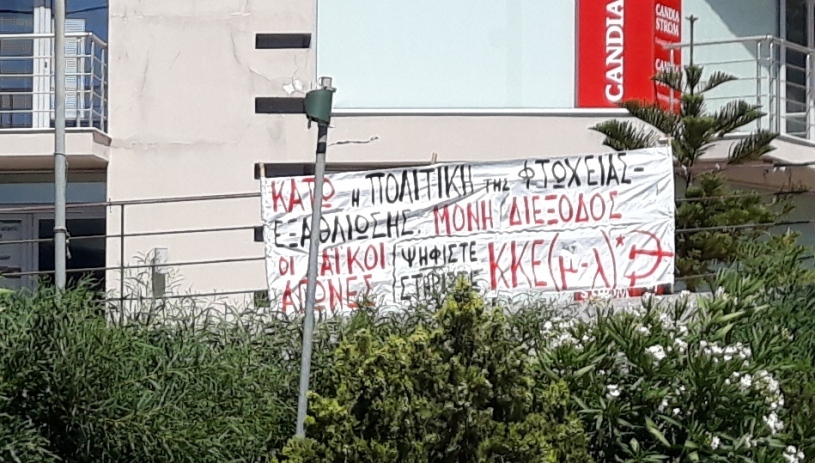 CANDIA
CANDIA
STROM
ΚΑΤΩ η ΠΟΛΙΤΙΚΗ της ΦΤΩΧΕΙΑΣ-
ΕΞΑΘΛΙΩΣΗΣ. ΜΟΝΗ ΔΙΕΞΟΔΟΣ
ΟΙ ΑΙΚΟΙ
ΑΓΩΝΕΣ
ΨΗΦΙΣΤΕ
ΣΤΗΡΙΞΤΕ
ΚΚΕ(μ-λ)*